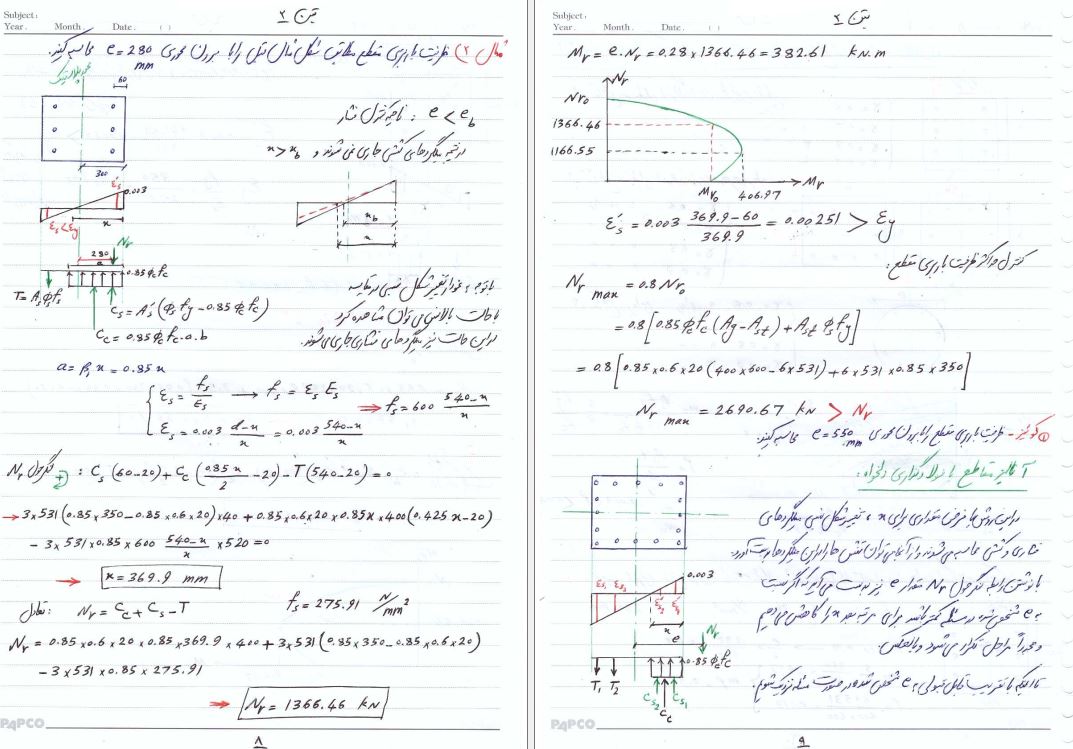 Subject:
Year. Month. Date. ( )
بتن ۲
مثال ۲) ظرفیت باربری مقطع مطابق شکل مثال قبل را با برون محوری e = 280 mm محاسبه کنید.
محور پلاستیک
60
300
e < e_b : ناحیه کنترل فشار
در نتیجه میلگردهای کششی جاری نمی شوند و x > x_b
ε's 0.003
εs < εy
x
x_b
x
Nr
280
a
0.85 φc fc
T = As φs fs
Cs = A's (φs fy − 0.85 φc fc)
Cc = 0.85 φc fc . a . b
با توجه به نمودار تغییر شکل نسبی در مقایسه
با حالت بالانس می توان مشاهده کرد
در این حالت نیز میلگردهای فشاری جاری می شوند.
a = β1 x = 0.85 x
εs = fs/Es → fs = εs Es
εs = 0.003 (d − x)/x = 0.003 (540 − x)/x
⇒ fs = 600 (540 − x)/x
لنگر حول Nr : Cs (60 − 20) + Cc (0.85 x/2 − 20) − T (540 − 20) = 0
→ 3×531 (0.85×350 − 0.85×0.6×20)×40 + 0.85×0.6×20×0.85x×400 (0.425 x − 20)
− 3×531×0.85×600 (540 − x)/x ×520 = 0
→ x = 369.9 mm
fs = 275.91 N/mm²
تعادل: Nr = Cc + Cs − T
Nr = 0.85×0.6×20×0.85×369.9×400 + 3×531 (0.85×350 − 0.85×0.6×20)
− 3×531×0.85×275.91
⇒ Nr = 1366.46 kN
PAPCO
۸
Subject:
Year. Month. Date. ( )
بتن ۲
Mr = e.Nr = 0.28×1366.46 = 382.61 kN.m
Nr
Nr0
1366.46
1166.55
Mr0 406.97 Mr
ε's = 0.003 (369.9 − 60)/369.9 = 0.00251 > εy
کنترل حداکثر ظرفیت باربری مقطع:
Nr max = 0.8 Nr0
= 0.8 [0.85 φc fc (Ag − Ast) + Ast φs fy]
= 0.8 [0.85×0.6×20 (400×600 − 6×531) + 6×531×0.85×350]
Nr max = 2690.67 kN > Nr
① کوئیز - ظرفیت باربری مقطع را با برون محوری e = 550 mm محاسبه کنید.
آنالیز مقاطع با فولادگذاری دلخواه:
در این روش با فرض مقداری برای x، تغییر شکل نسبی میلگردهای
فشاری و کششی محاسبه می شوند و از آنجا می توان تنش ها را در این میلگردها بدست آورد.
با نوشتن رابطه لنگر حول Nr مقدار e نیز بدست می آید که اگر نسبت
به e مشخص شده در مسئله کمتر باشد برای مرتبه بعد x را کاهش می دهیم
و مجدداً مراحل تکرار می شود و بالعکس.
تا اینکه با تقریب قابل قبولی به e مشخص شده در صورت مسئله نزدیک شویم.
0.003
εs1 εs2
ε's2 ε's1
x
e
Nr
0.85 φc fc
T1 T2
Cs2 Cs1
Cc
PAPCO
۹